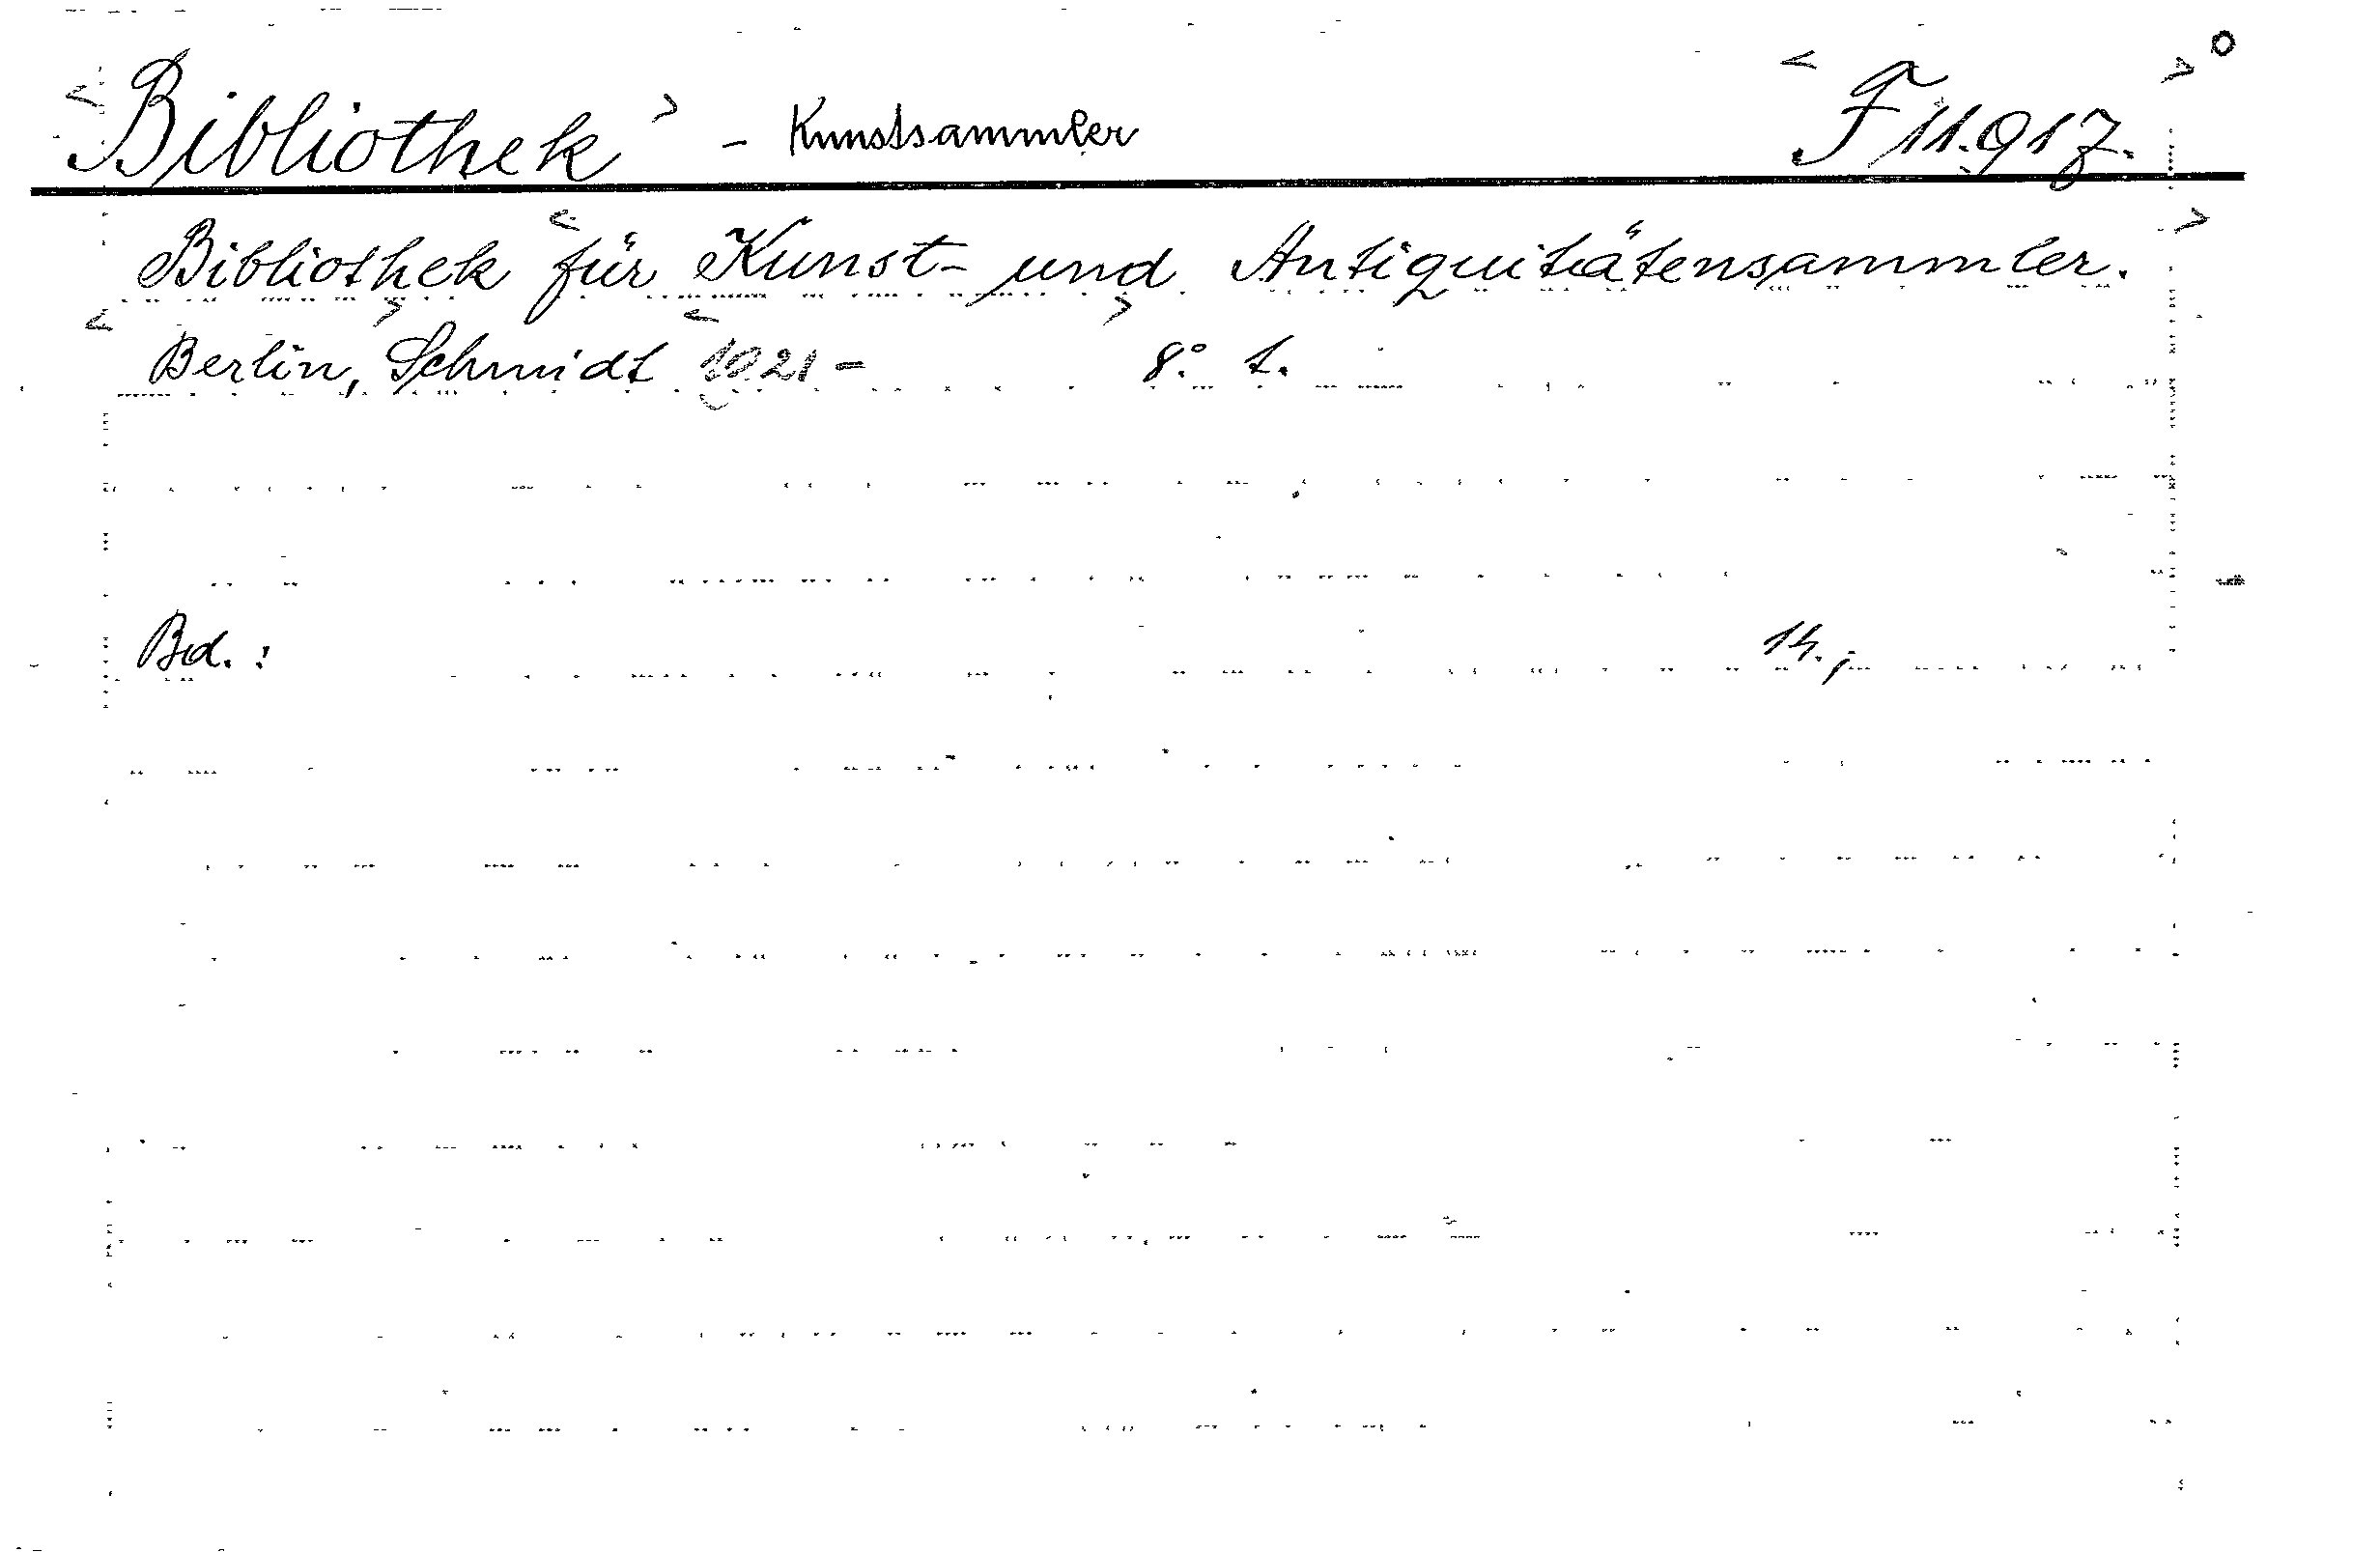 <Bibliothek> - Kunstsammler <F 11.917.>°
Bibliothek <für Kunst- und Antiquitätensammler.>
<Berlin,> Schmidt <1921-> 8° t.
Bd.: 14.;